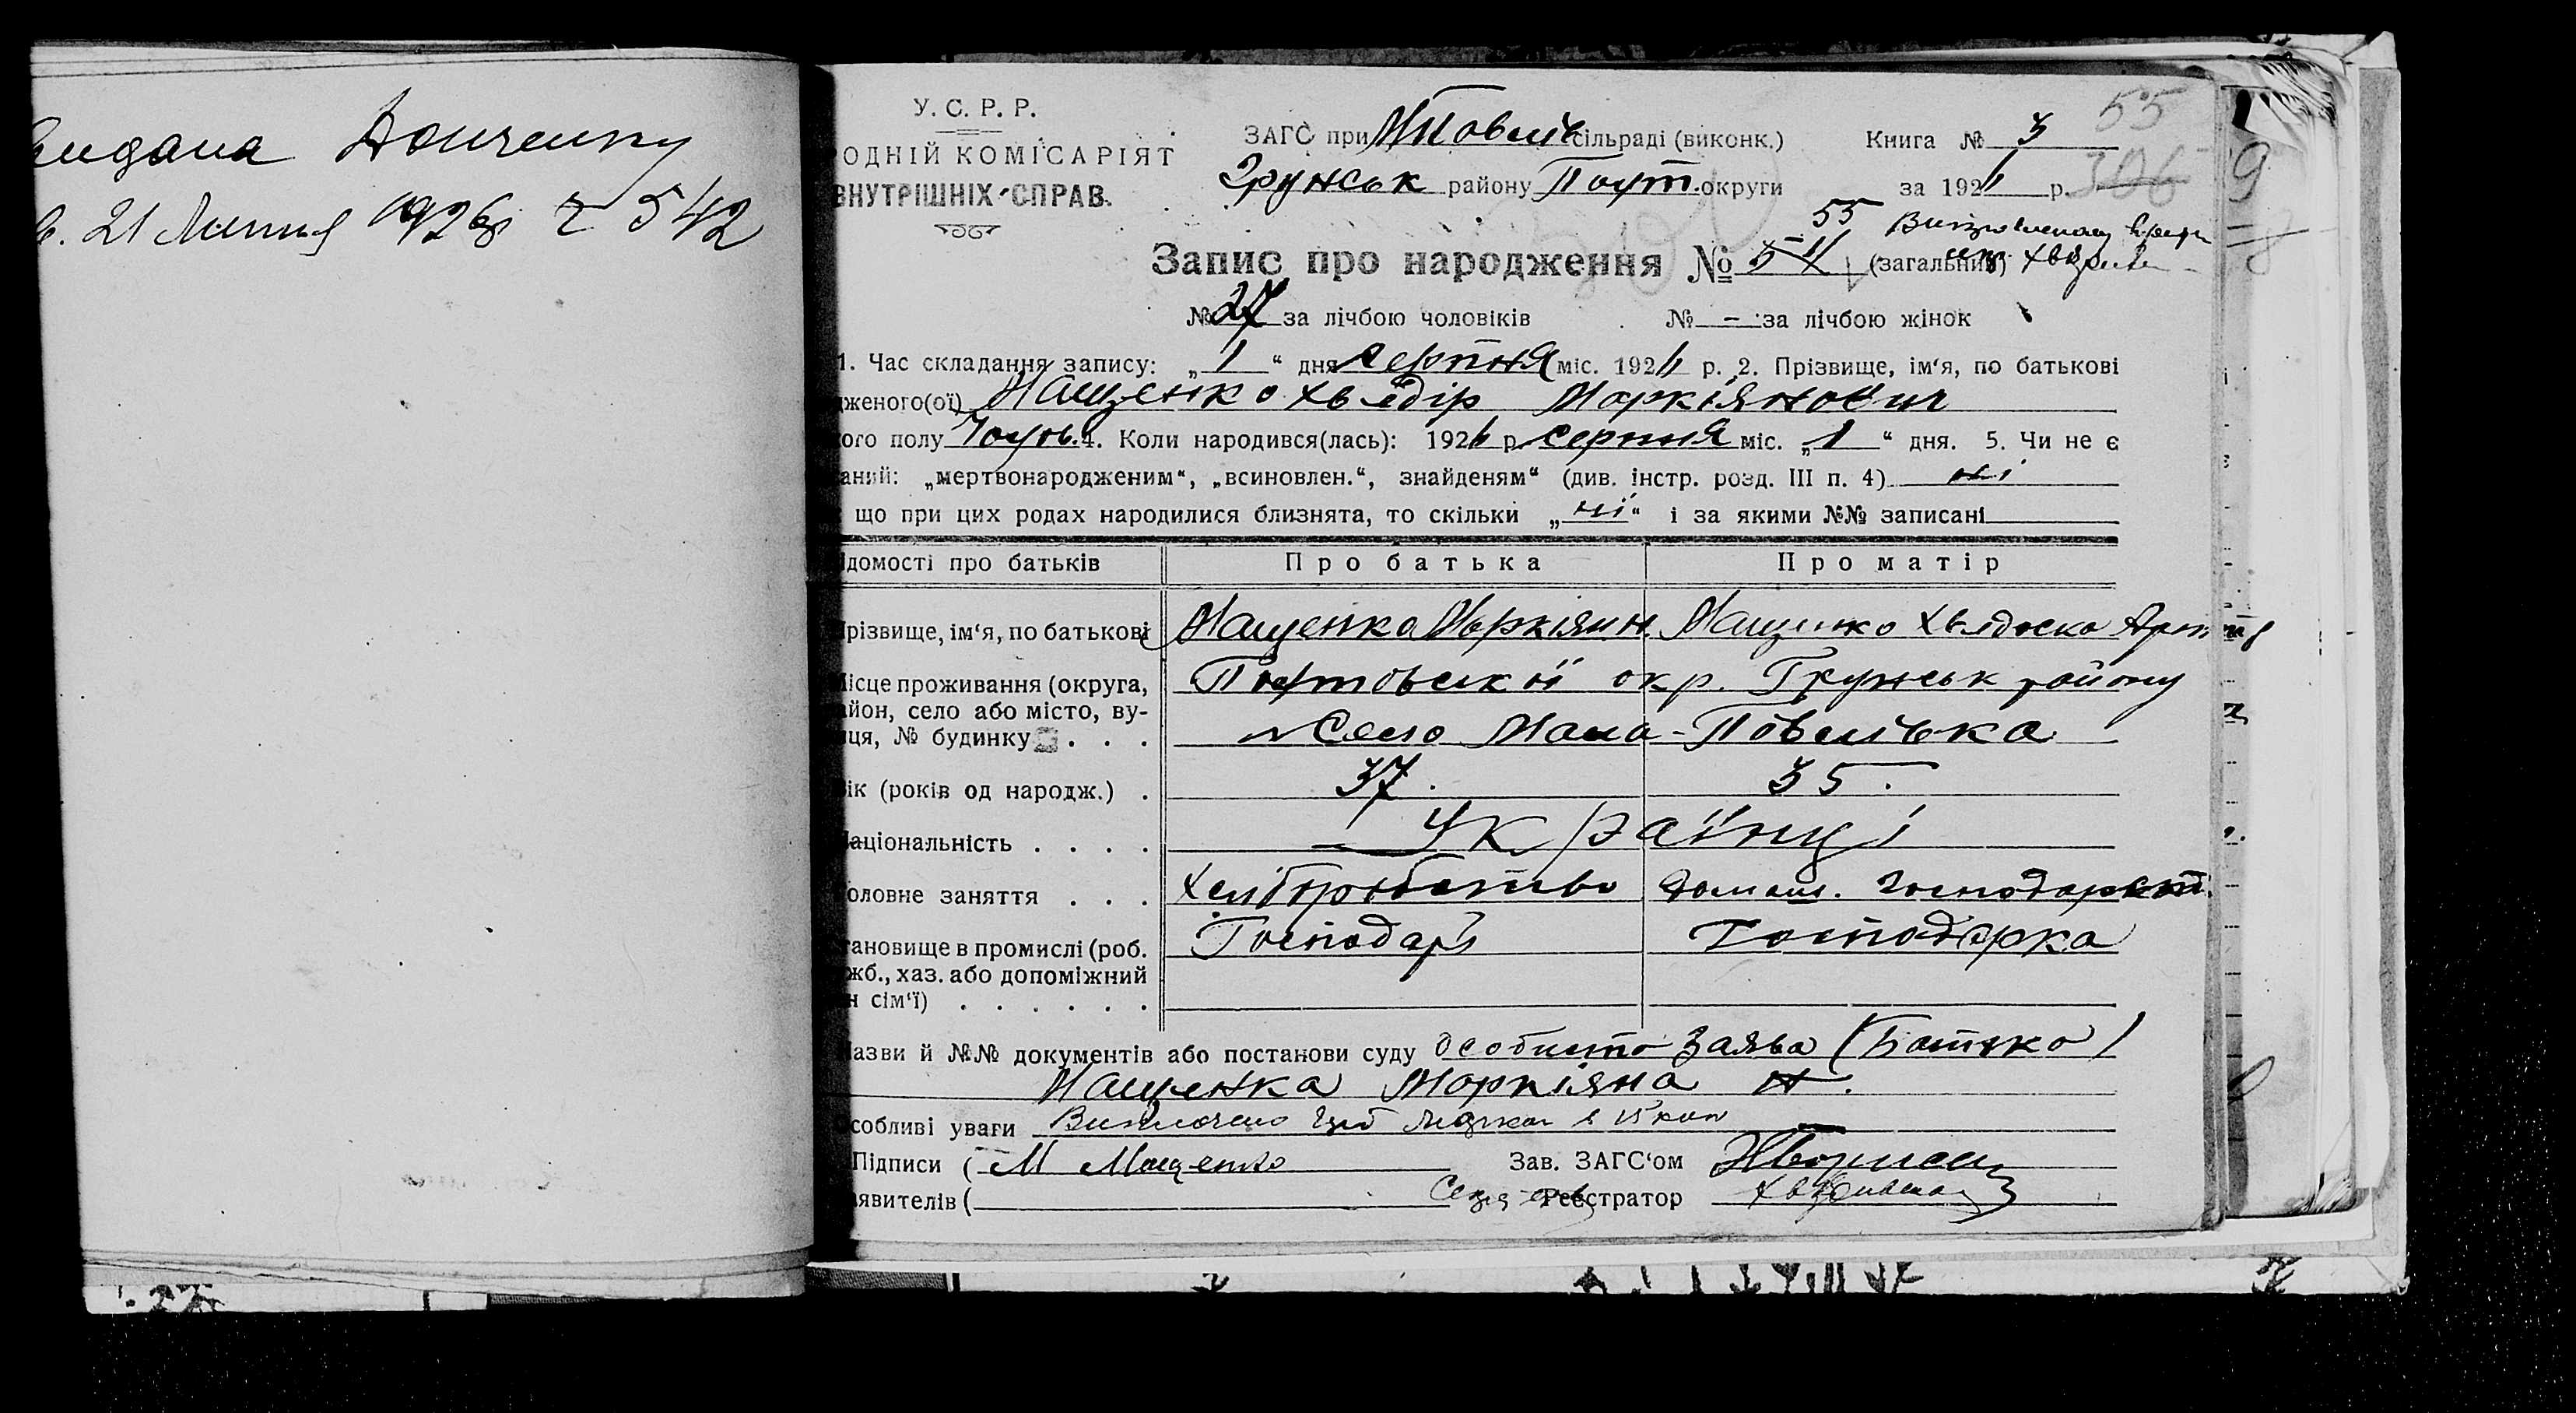 видана Донченку
в. 21 Липня 1926р 542
У. С. Р. Р.
ОДНІЙ КОМІСАРІЯТ
ВНУТРІШНІХ СПРАВ.
ЗАГС при МПовельсільраді (виконк.)
Грунськ району Полт. округи
Книга № 3
за 1926 р.
55
306
55
Запис про народження № 54 (загальний)
№ 27 за лічбою чоловіків № - за лічбою жінок
1. Час складання запису: „1“ дня серпня міс. 1926 р. 2. Прізвище, ім‘я, по батькові
дженого(ої) Мащенко Хведір Маркіянович
ого полу Чолов. 4. Коли народився(лась): 1926 р. серпня міс. „1“ дня. 5. Чи не є
аний: „мертвонародженим“, „всиновлен.“, знайденям“ (див. інстр. розд. III п. 4) ні
що при цих родах народилися близнята, то скільки „ні“ і за якими №№ записані
ідомості про батьків Про батька Про матір
Прізвище, ім‘я, по батькові Мащенко Маркіян Н. Мащенко Хведоска
Місце проживання (округа, Полтовської окр. Грунськ району
айон, село або місто, ву-
иця, № будинку . . . Село Мала-Повелька
Вік (років од народж.) . 37. 35.
Національність . . . . Українці
Головне заняття . . . Хліборобство домаш. господарств.
тановище в промислі (роб. Господарь Господарка
жб., хаз. або допоміжний
н сім‘ї) . . . . . .
Назви й №№ документів або постанови суду особисто заява (Батько)
Мащенка Маркіяна Н.
собливі уваги 15 коп
Підписи ( М Мащенко Зав. ЗАГС‘ом
аявителів ( Реєстратор